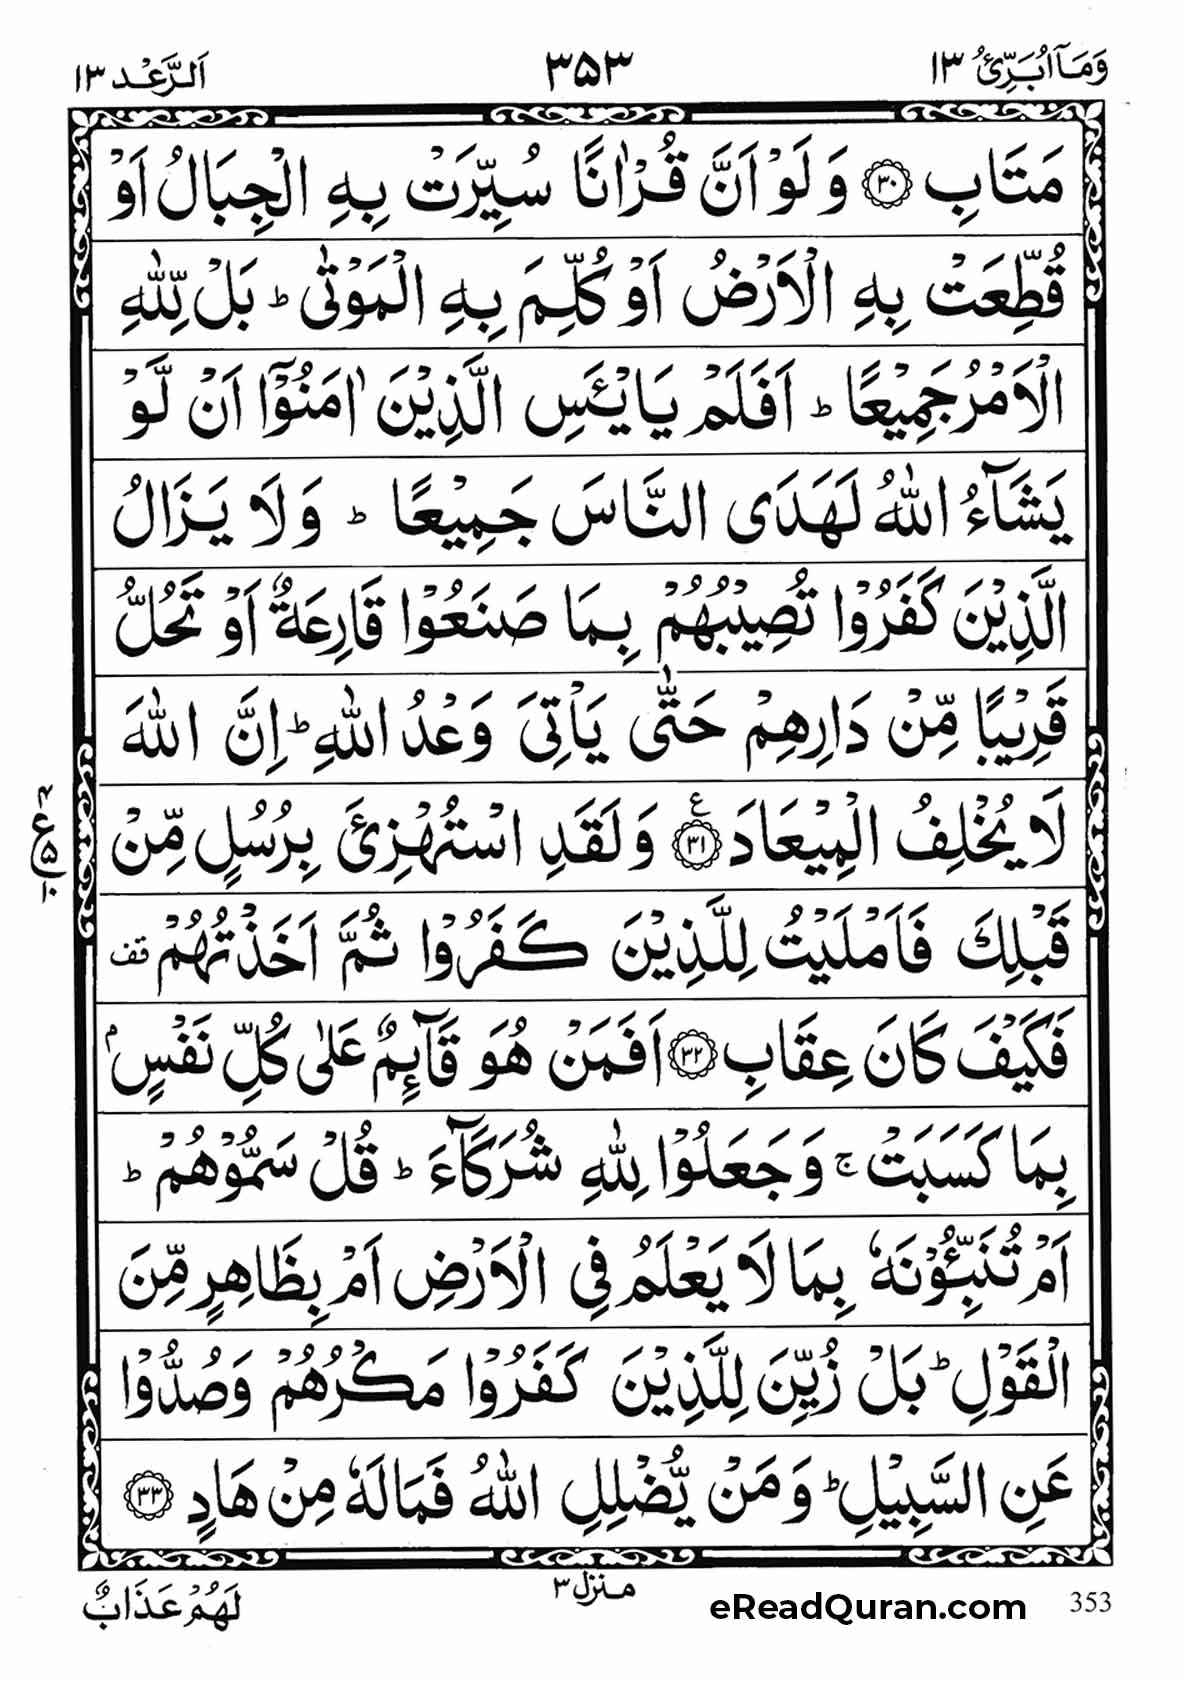 وَمَاۤ اُبَرِّئُ ١٣
٣٥٣
اَلرَّعْد ١٣
مَتَابِ ﴿٣٠﴾ وَ لَوْ اَنَّ قُرْاٰنًا سُيِّرَتْ بِهِ الْجِبَالُ اَوْ
قُطِّعَتْ بِهِ الْاَرْضُ اَوْ كُلِّمَ بِهِ الْمَوْتٰى ؕ بَلْ لِّلّٰهِ
الْاَمْرُ جَمِيْعًا ؕ اَفَلَمْ يَايْـَٔسِ الَّذِيْنَ اٰمَنُوْۤا اَنْ لَّوْ
يَشَآءُ اللّٰهُ لَهَدَى النَّاسَ جَمِيْعًا ؕ وَ لَا يَزَالُ
الَّذِيْنَ كَفَرُوْا تُصِيْبُهُمْ بِمَا صَنَعُوْا قَارِعَةٌ اَوْ تَحُلُّ
قَرِيْبًا مِّنْ دَارِهِمْ حَتّٰى يَاْتِيَ وَعْدُ اللّٰهِ ؕ اِنَّ اللّٰهَ
لَا يُخْلِفُ الْمِيْعَادَ ﴿٣١﴾ ع وَ لَقَدِ اسْتُهْزِئَ بِرُسُلٍ مِّنْ
قَبْلِكَ فَاَمْلَيْتُ لِلَّذِيْنَ كَفَرُوْا ثُمَّ اَخَذْتُهُمْ قف
فَكَيْفَ كَانَ عِقَابِ ﴿٣٢﴾ اَفَمَنْ هُوَ قَآئِمٌ عَلٰى كُلِّ نَفْسٍۭ
بِمَا كَسَبَتْ ۚ وَ جَعَلُوْا لِلّٰهِ شُرَكَآءَ ؕ قُلْ سَمُّوْهُمْ ؕ
اَمْ تُنَبِّـُٔوْنَهٗ بِمَا لَا يَعْلَمُ فِي الْاَرْضِ اَمْ بِظَاهِرٍ مِّنَ
الْقَوْلِ ؕ بَلْ زُيِّنَ لِلَّذِيْنَ كَفَرُوْا مَكْرُهُمْ وَ صُدُّوْا
عَنِ السَّبِيْلِ ؕ وَ مَنْ يُّضْلِلِ اللّٰهُ فَمَا لَهٗ مِنْ هَادٍ ﴿٣٣﴾
لَهُمْ عَذَابٌ
منزل ٣
eReadQuran.com
353